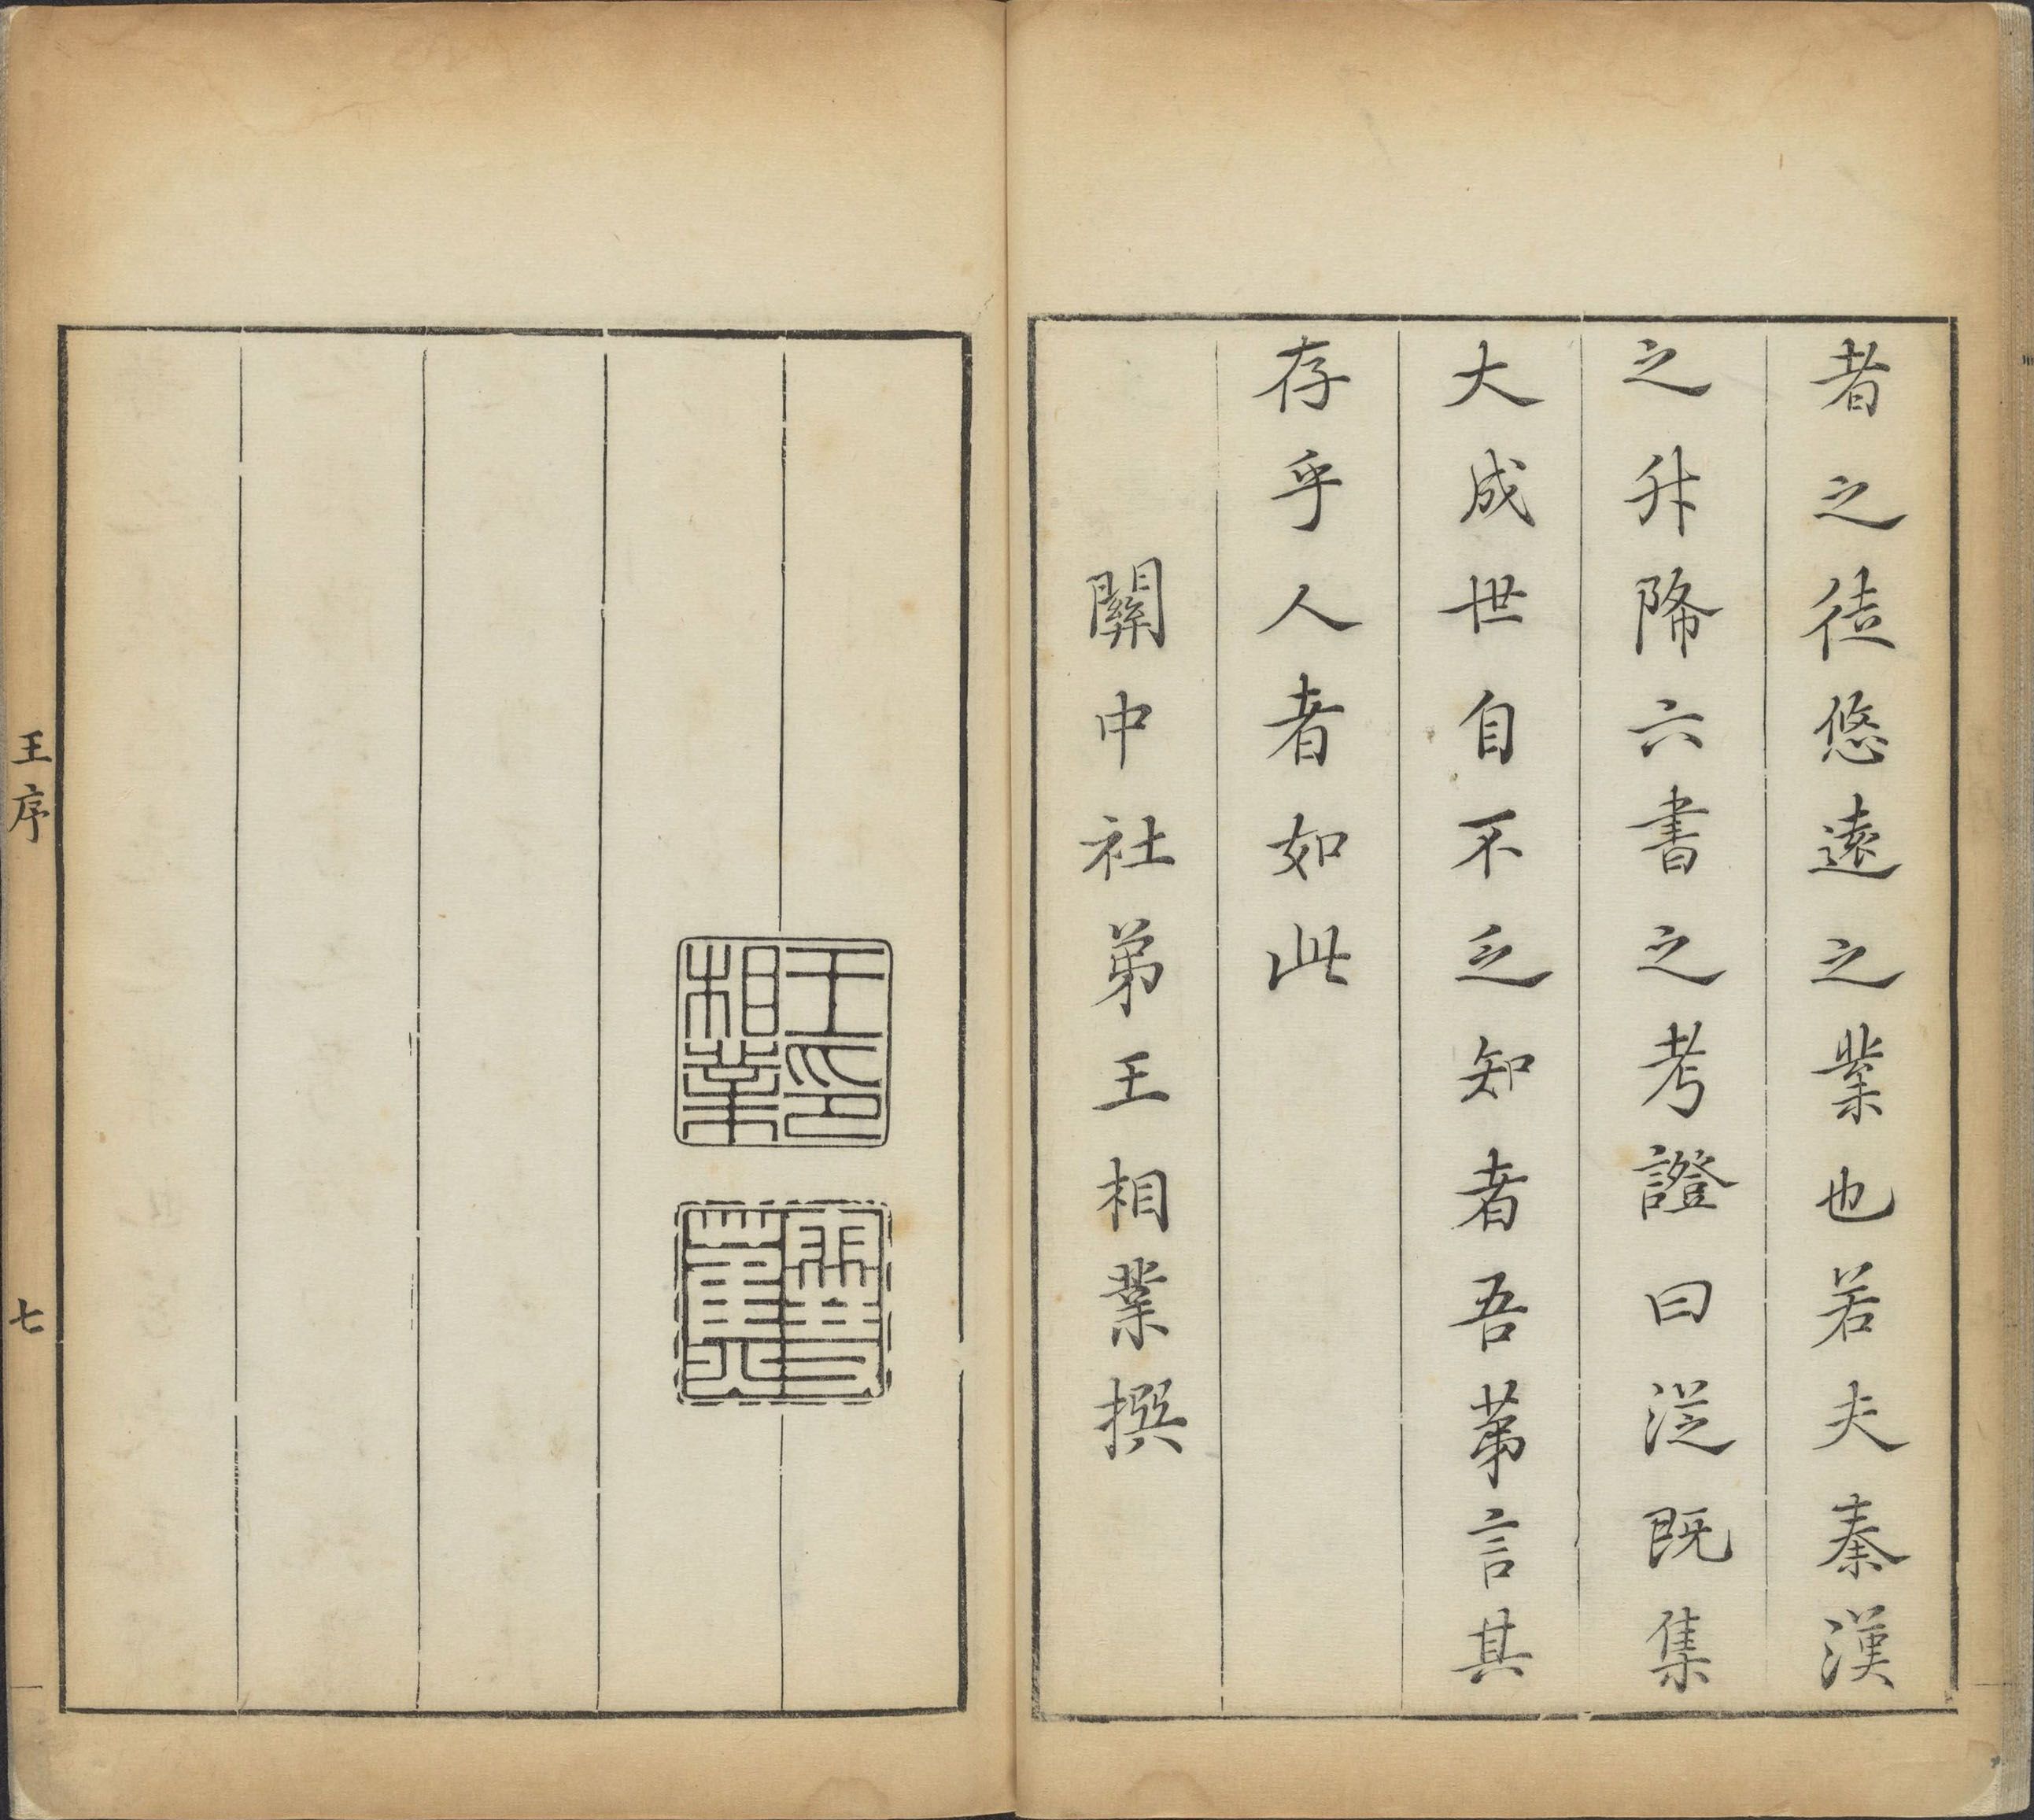 者之徒悠遠之業也若夫秦漢
之升降六書之考證曰從既集
大成世自不乏知者吾第言其
存乎人者如此
關中社弟王相業撰
王印相業
王序 七